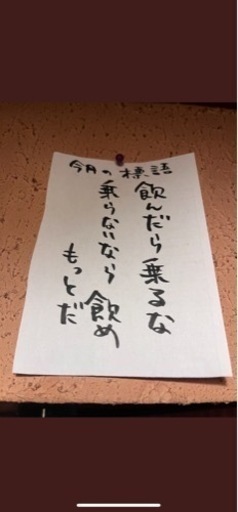 今月の標語
飲んだら乗るな
乗らないなら飲め
もっとだ